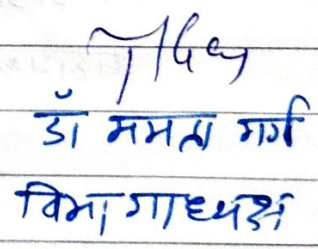 डॉ ममता गर्ग
विभागाध्यक्ष